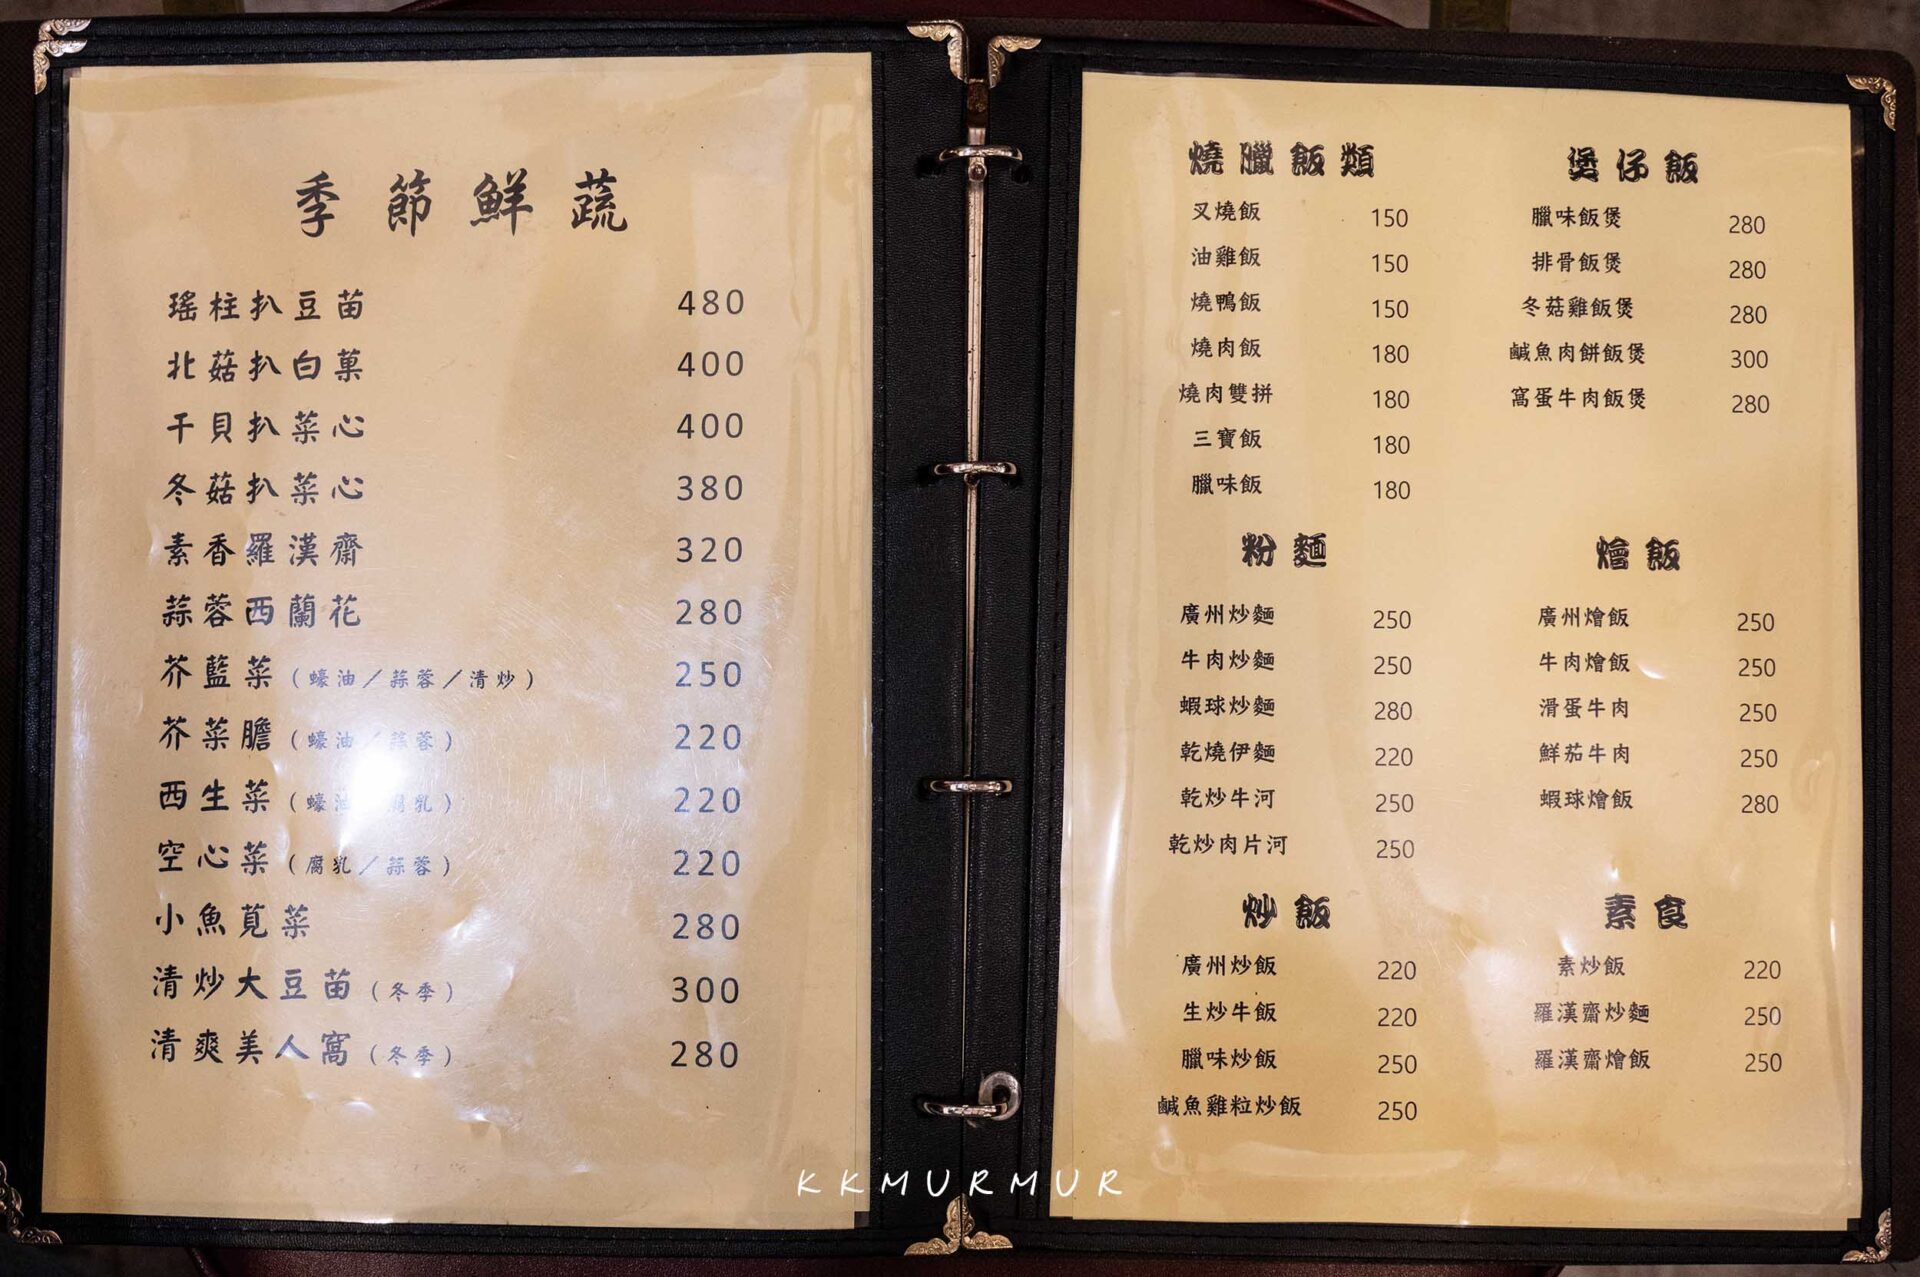 季節鮮蔬
瑤柱扒豆苗 480
北菇扒白菓 400
干貝扒菜心 400
冬菇扒菜心 380
素香羅漢齋 320
蒜蓉西蘭花 280
芥藍菜(蠔油/蒜蓉/清炒) 250
芥菜膽(蠔油/蒜蓉) 220
西生菜(蠔油/腐乳) 220
空心菜(腐乳/蒜蓉) 220
小魚莧菜 280
清炒大豆苗(冬季) 300
清爽美人窩(冬季) 280
燒臘飯類
叉燒飯 150
油雞飯 150
燒鴨飯 150
燒肉飯 180
燒肉雙拼 180
三寶飯 180
臘味飯 180
煲仔飯
臘味飯煲 280
排骨飯煲 280
冬菇雞飯煲 280
鹹魚肉餅飯煲 300
窩蛋牛肉飯煲 280
粉麵
廣州炒麵 250
牛肉炒麵 250
蝦球炒麵 280
乾燒伊麵 220
乾炒牛河 250
乾炒肉片河 250
燴飯
廣州燴飯 250
牛肉燴飯 250
滑蛋牛肉 250
鮮茄牛肉 250
蝦球燴飯 280
炒飯
廣州炒飯 220
生炒牛飯 220
臘味炒飯 250
鹹魚雞粒炒飯 250
素食
素炒飯 220
羅漢齋炒麵 250
羅漢齋燴飯 250
KKMURMUR